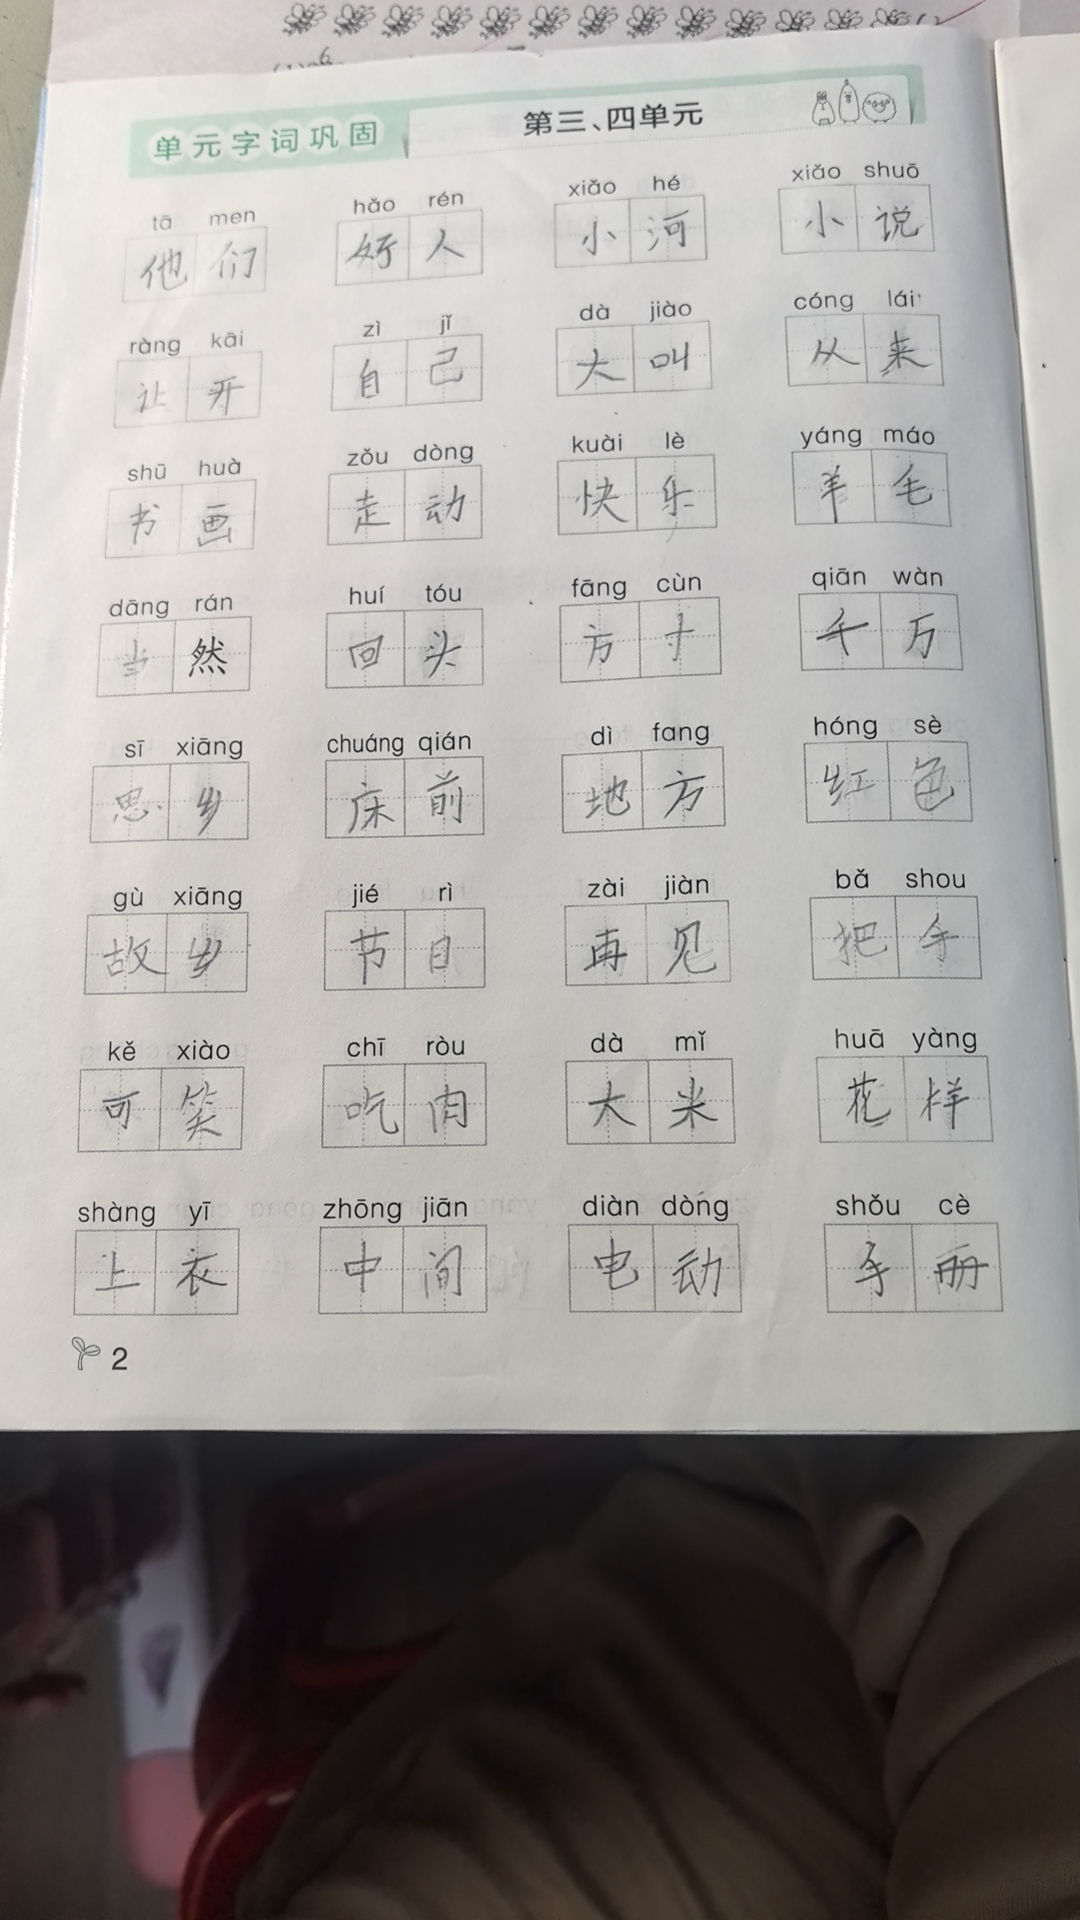 单元字词巩固 第三、四单元
tā men hǎo rén xiǎo hé xiǎo shuō
他们 好人 小河 小说
ràng kāi zì jǐ dà jiào cóng lái
让开 自己 大叫 从来
shū huà zǒu dòng kuài lè yáng máo
书画 走动 快乐 羊毛
dāng rán huí tóu fāng cùn qiān wàn
当然 回头 方寸 千万
sī xiāng chuáng qián dì fang hóng sè
思乡 床前 地方 红色
gù xiāng jié rì zài jiàn bǎ shou
故乡 节日 再见 把手
kě xiào chī ròu dà mǐ huā yàng
可笑 吃肉 大米 花样
shàng yī zhōng jiān diàn dòng shǒu cè
上衣 中间 电动 手册
2